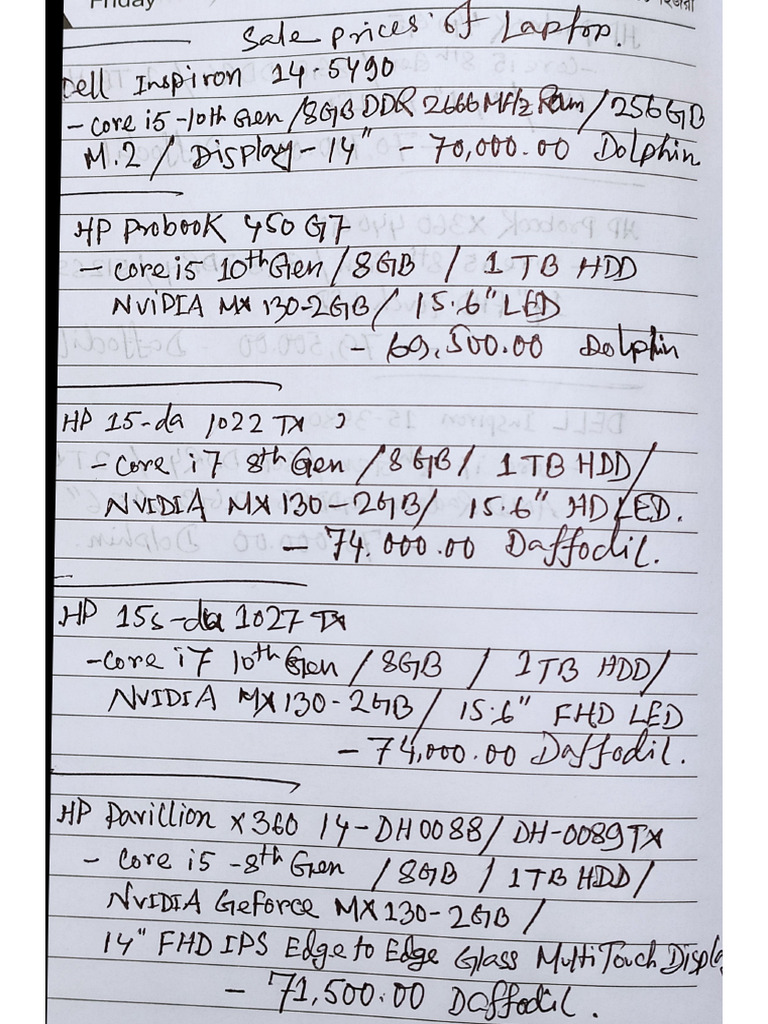 Friday
Sale prices of Laptop.
Dell Inspiron 14-5490
- Core i5-10th Gen /8GB DDR 2666MHz Ram/256GB
M.2/ Display-14" - 70,000.00 Dolphin
HP Probook 450 G7
- Core i5 10th Gen /8GB /1TB HDD
NViDIA MX 130-2GB/ 15.6" LED
- 69,500.00 Dolphin
HP 15-da 1022 TX
- Core i7 8th Gen /8GB/ 1TB HDD/
NVIDIA MX 130-2GB/ 15.6" HD LED.
- 74,000.00 Daffodil.
HP 15s-du 1027 TX
-Core i7 10th Gen /8GB /1TB HDD/
NVIDIA MX 130-2GB/ 15.6" FHD LED
- 74,000.00 Daffodil.
HP Pavillion x360 14-DH0088/DH-0089TX
- Core i5-8th Gen /8GB /1TB HDD/
NVIDIA GeForce MX130-2GB/
14" FHD IPS Edge to Edge Glass MultiTouch Displa
- 71,500.00 Daffodil.